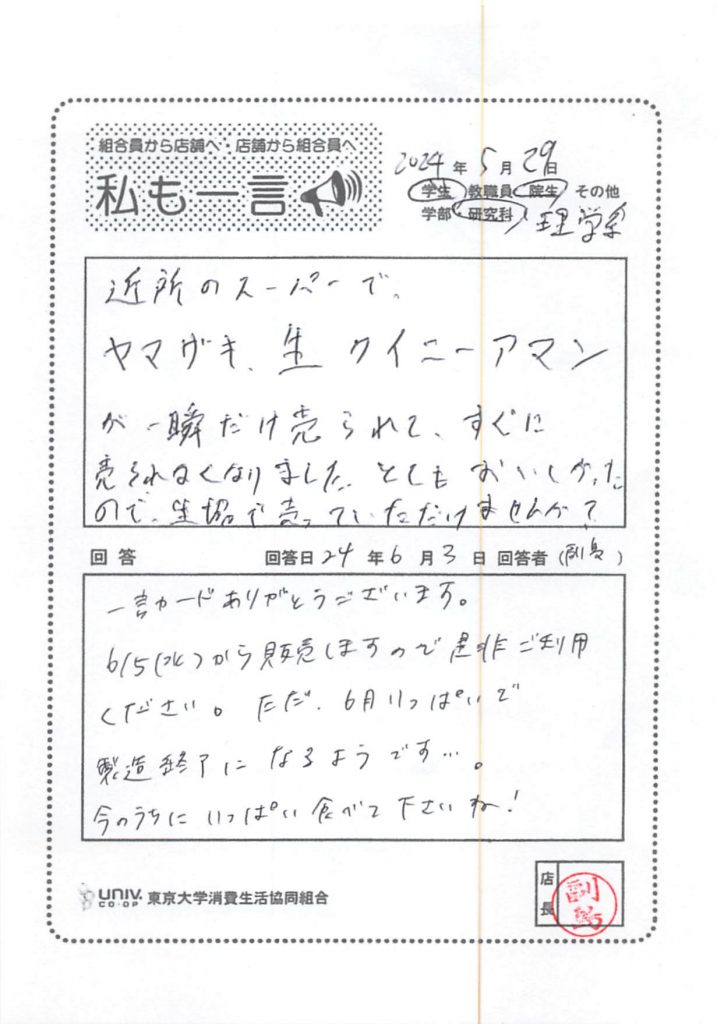 組合員から店舗へ・店舗から組合員へ
私も一言
2024年5月29日
学生 教職員 院生 その他
学部・研究科 理学系
近所のスーパーで、
ヤマザキ、生 クイニーアマン
が一瞬だけ売られて、すぐに
売られなくなりました。とてもおいしかった
ので、生協で売っていただけませんか?
回答 回答日24年6月3日 回答者(副島)
一言カードありがとうございます。
6/5(水)から販売しますので是非ご利用
ください。ただ、6月いっぱいで
製造終了になるようです…。
今のうちにいっぱい食べて下さいね!
店長
副島
UNIV. CO-OP 東京大学消費生活協同組合